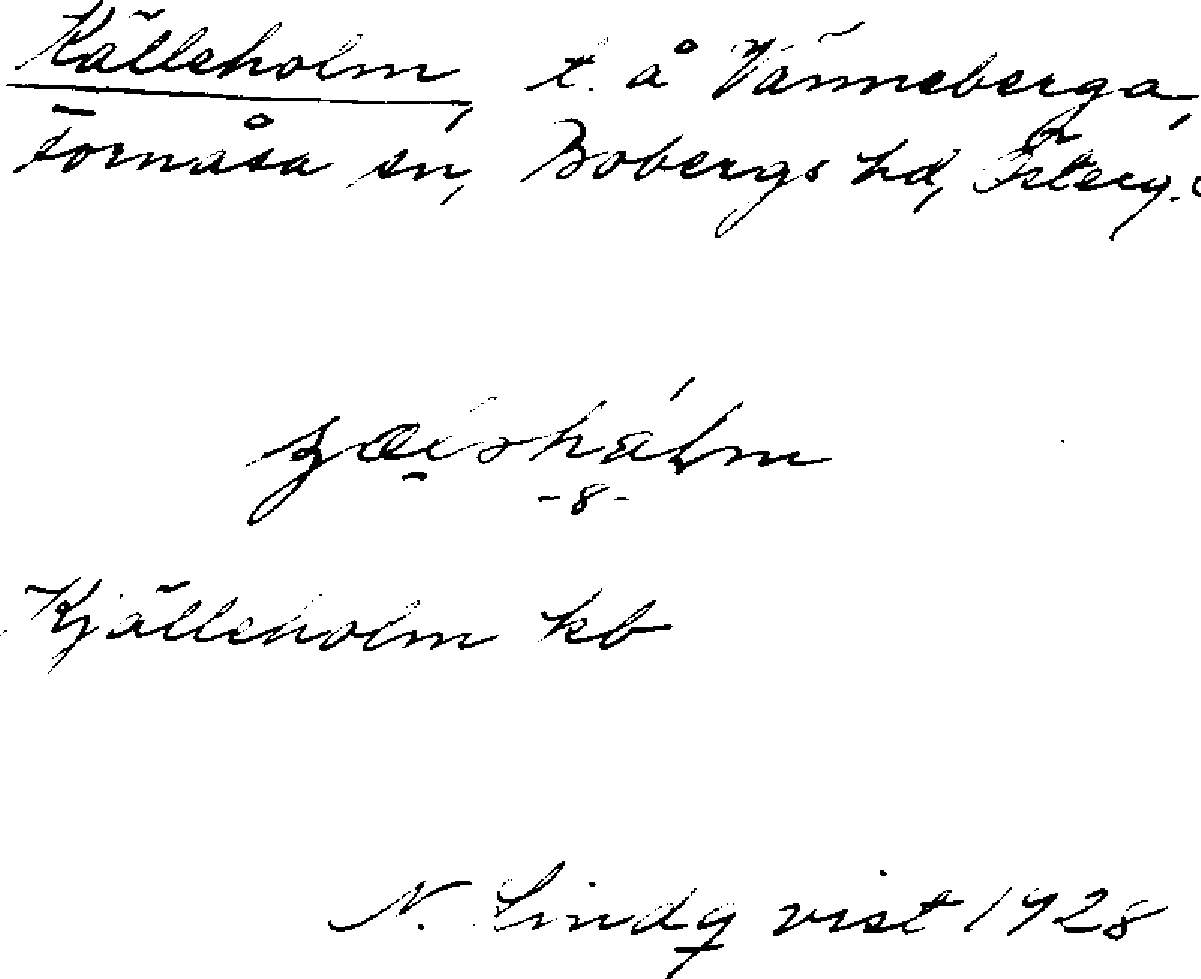 Källeholm, t. å Vänneberga,
Fornåsa sn, Bobergs hd, Österg.
-8-
Kjälleholm kb
N. Lindqvist 1928